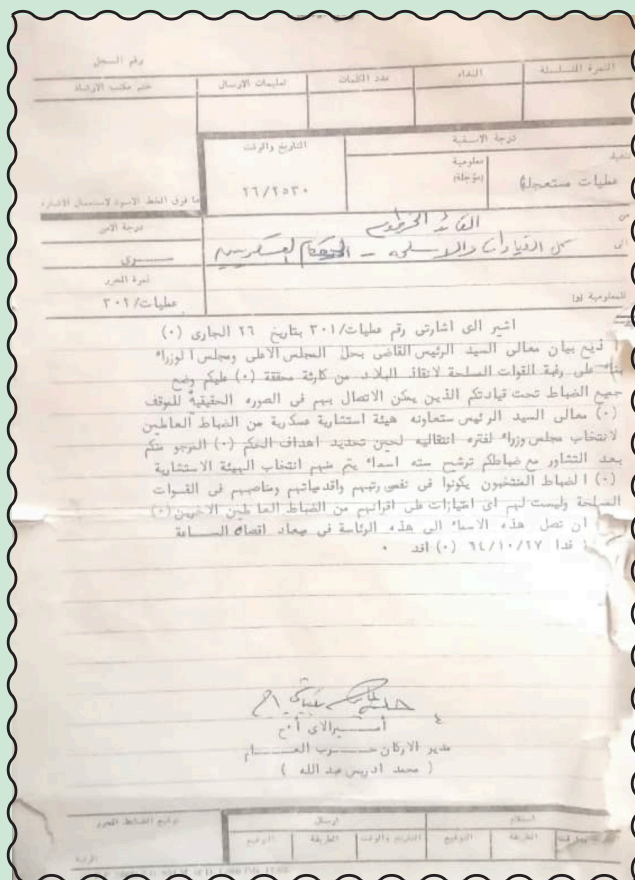 رقم السجل
النمرة المتسلسلة
النداء
عدد الكلمات
تعليمات الارسال
ختم مكتب الارشاد
درجة الاسبقية
التاريخ والوقت
تنفيذ
عمليات مستعجلة
معلومية
(مؤجلة)
٢٦/٢٥٣٠
ما فوق الخط الاسود لاستعمال الاشارة
من
القائد الخرطوم
الى
كل القيادات والاسلحه - الحكام العسكريين
درجة الامن
ســـرى
للمعلومية الى
نمرة المحرر
عمليات/٣٠٢
اشير الى اشارتى رقم عمليات/٣٠١ بتاريخ ٢٦ الجارى (٠)
اذيع بيان معالى السيد الرئيس القاضى بحل المجلس الاعلى ومجلس الوزراء
بناء على رغبة القوات المسلحة لانقاذ البلاد من كارثة محققة (٠) عليكم وضع
جميع الضباط تحت قيادتكم الذين يمكن الاتصال بهم فى الصوره الحقيقية للموقف
(٠) معالى السيد الرئيس ستعاونه هيئة استشارية عسكرية من الضباط العاملين
لانتخاب مجلس وزراء لفتره انتقاليه لحين تحديد اهداف الحكم (٠) المرجو منكم
بعد التشاور مع ضباطكم ترشيح سته اسماء يتم منهم انتخاب الهيئة الاستشارية
(٠) الضباط المنتخبون يكونوا فى نفس رتبهم واقدمياتهم ومناصبهم فى القسوات
المسلحة وليست لهم اى امتيازات على اقرانهم من الضباط العاملين الاخرين (٠)
ان تصل هذه الاسماء الى هذه الرئاسة فى ميعاد اقصاه الســـاعة
غدا ٦٤/١٠/٢٧ (٠) افد ٠
أمـــيرالاى أ٠ح
مدير الاركان حــــرب العـــــام
( محمد ادريس عبد الله )
استلام
ارسال
توقيع الضابط المحرر
الطريقة
التوقيع
التاريخ والوقت
الطريقة
التوقيع
الرتبة